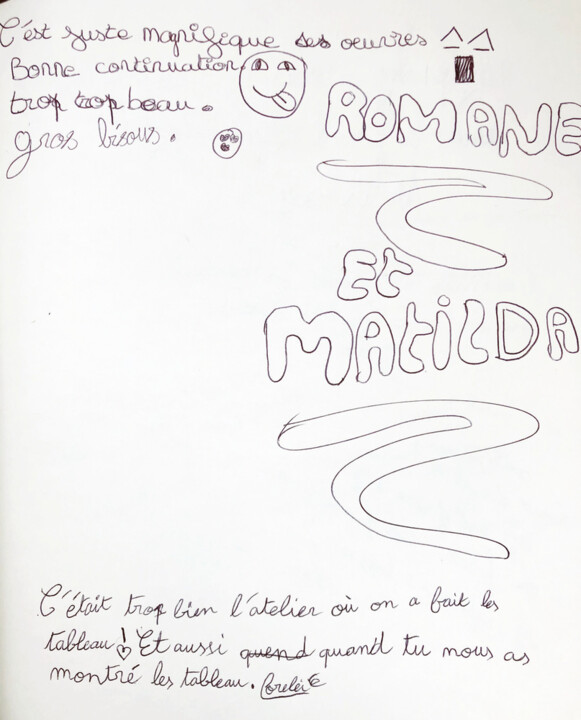 C'est juste magnifique ses oeuvres
Bonne continuation
trop trop beau.
gros bisous.
ROMANE
Et
MAtiLDA
C'était trop bien l'atelier où on a fait les
tableau! Et aussi quend quand tu nous as
montré les tableau.